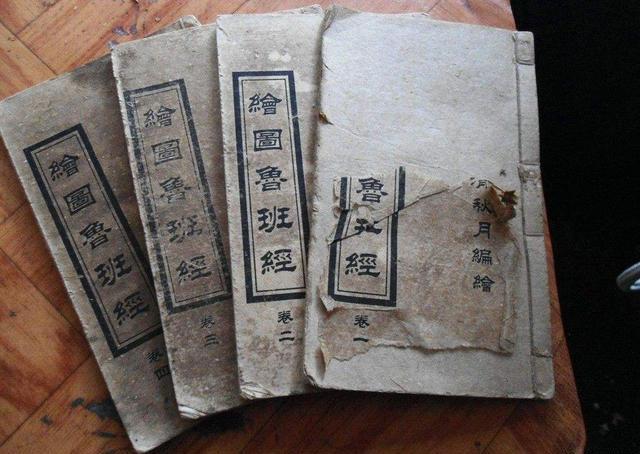 秋月編繪
魯班經
卷一
繪圖魯班經
卷二
繪圖魯班經
卷三
繪圖魯班經
卷四